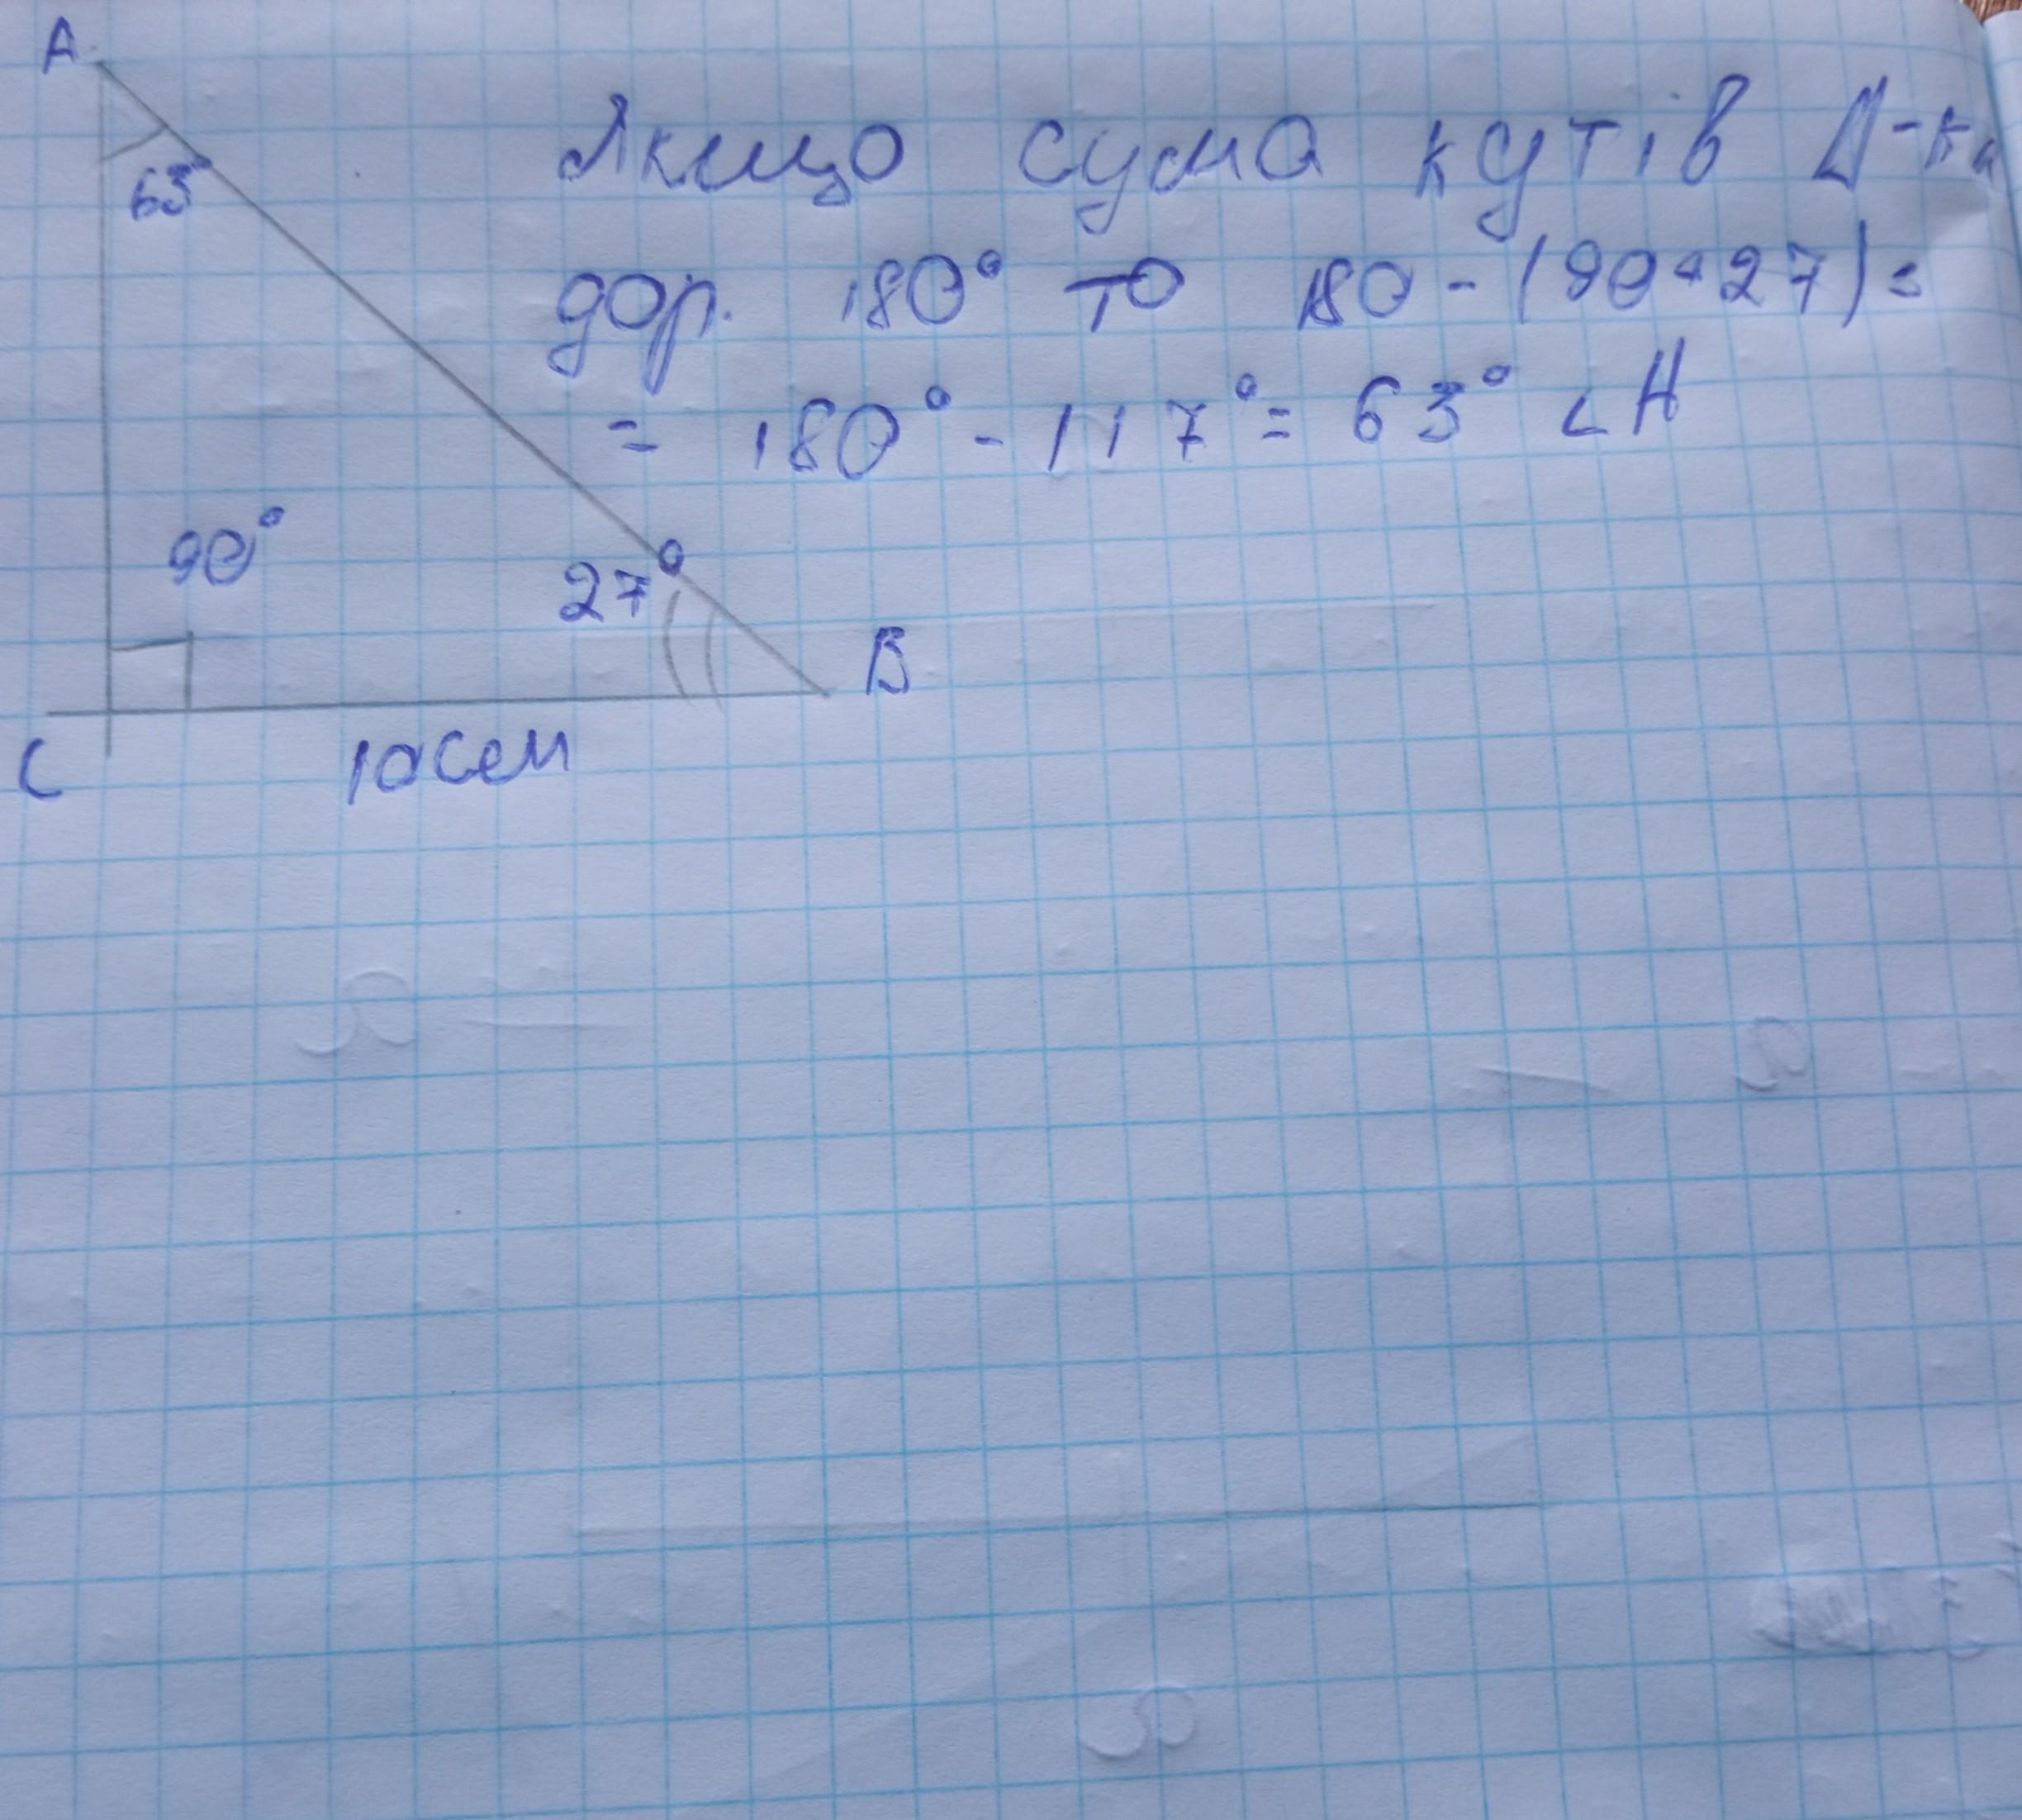 A
63°
Якщо сума кутів Δ-ка
дор. 180° то 180-(90+27)=
= 180° - 117° = 63° ∠A
90°
27°
B
C
10 см